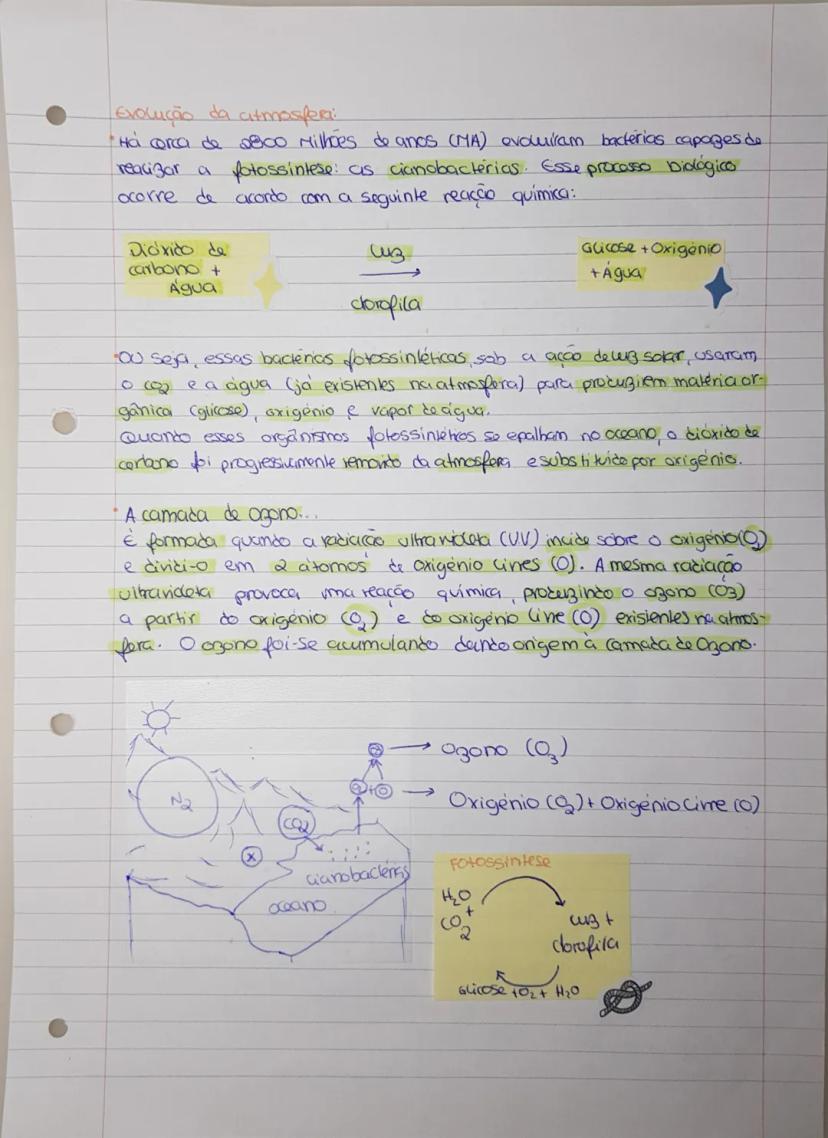 Evolução da atmosfera:
Há cerca de 2800 Milhões de anos (MA) evoluíram bactérias capazes de
realizar a fotossíntese: as cianobactérias. Esse processo biológico
ocorre de acordo com a seguinte reação química:
Dióxido de
carbono +
Água
luz
clorofila
Glicose + Oxigénio
+ Água
Ou seja, essas bactérias fotossintéticas, sob a ação de luz solar, usaram
o CO2 e a água (já existentes na atmosfera) para produzirem matéria or-
gânica (glicose), oxigénio e vapor de água.
Quanto esses orgânismos fotossintétios se epalham no oceano, o dióxido de
carbono foi progressivamente removido da atmosfera, e substituído por oxigénio.
A camada de ozono...
É formada quando a radiação ultravioleta (UV) incide sobre o oxigénio (O2)
e dividi-o em 2 átomos de oxigénio livres (O). A mesma radiação
ultravioleta provoca uma reação química, produzindo o ozono (O3)
a partir do oxigénio (O2) e do oxigénio livre (O) existentes na atmos-
fera. O ozono foi-se acumulando dando origem à Camada de Ozono.
O3 → Ozono (O3)
O2+O → Oxigénio (O2) + Oxigénio livre (O)
N2
CO2
x
cianobactérias
oceano
Fotossíntese
H2O
+
CO2
luz +
clorofila
Glicose + O2 + H2O